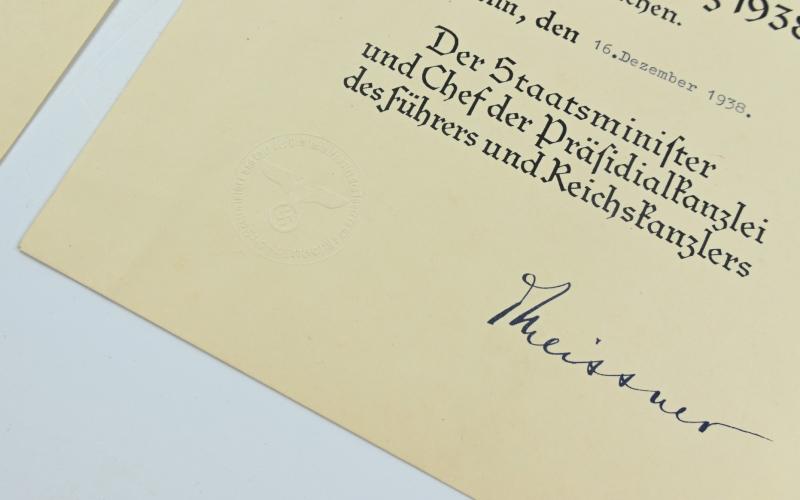 1938
den 16.Dezember 1938.
Der Staatsminister
und Chef der Präsidialkanzlei
des Führers und Reichskanzlers
Meissner